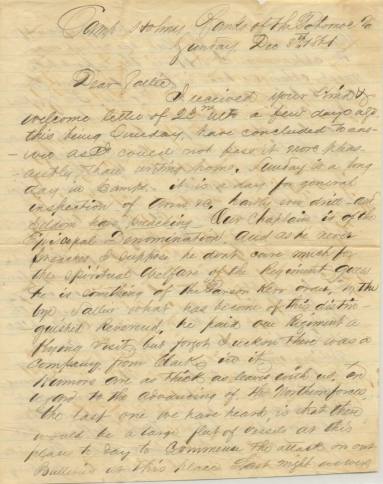 Camp Holmes Banks of the Potomac Va
Sunday Dec 8th 1861
Dear Sallie
I received your kind &
welcome letter of 22nd ult a few days ago
this being Sunday, have concluded to ans-
-wer as I could not pass it more pleas
antly than writing home. Sunday is a long
day in Camps. It is a day for general
inspection of Arms &c, hardly ever drill and
seldom have preaching. Our Chaplain is of the
Episcopal Denomination and as he never
preaches I suppose he dont care much for
the spiritual welfare of the Regiment guess
he is something of the Parson Kerr order, by the
bye Sallie what has become of this distin
guished Reverend, he paid our Regiment a
flying visit but forgot I reckon there was a
Company from Clark in it
Rumors are as thick as leaves with us, in
regard to the advancing of the Northern forces
the last one we have heard is that there
would be a large fleet of vessels at this
place to day to Commence the attack on our
Batteries at this place. Last night we were